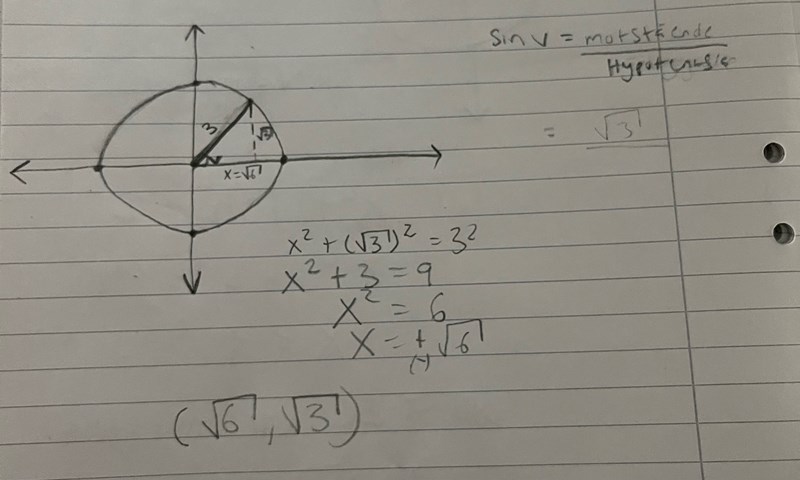 sin v = motstående
Hypotenusa
= √3
3
√3
v
x=√6
x² + (√3)² = 3²
x² + 3 = 9
x² = 6
x = ±√6
(-)
(√6, √3)